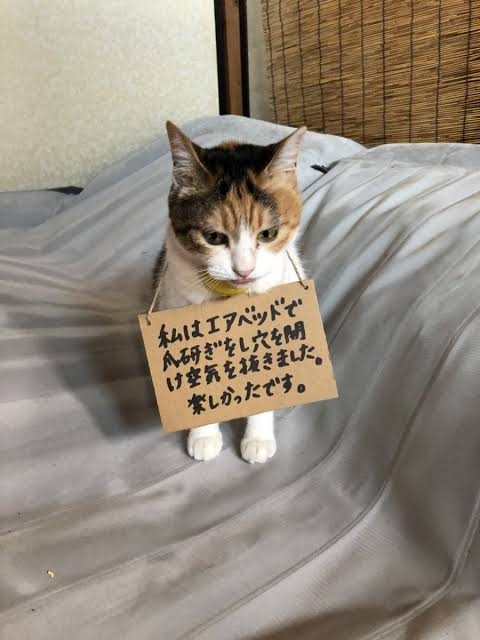 私はエアベッドで
爪研ぎをし穴を開
け空気を抜きました。
楽しかったです。